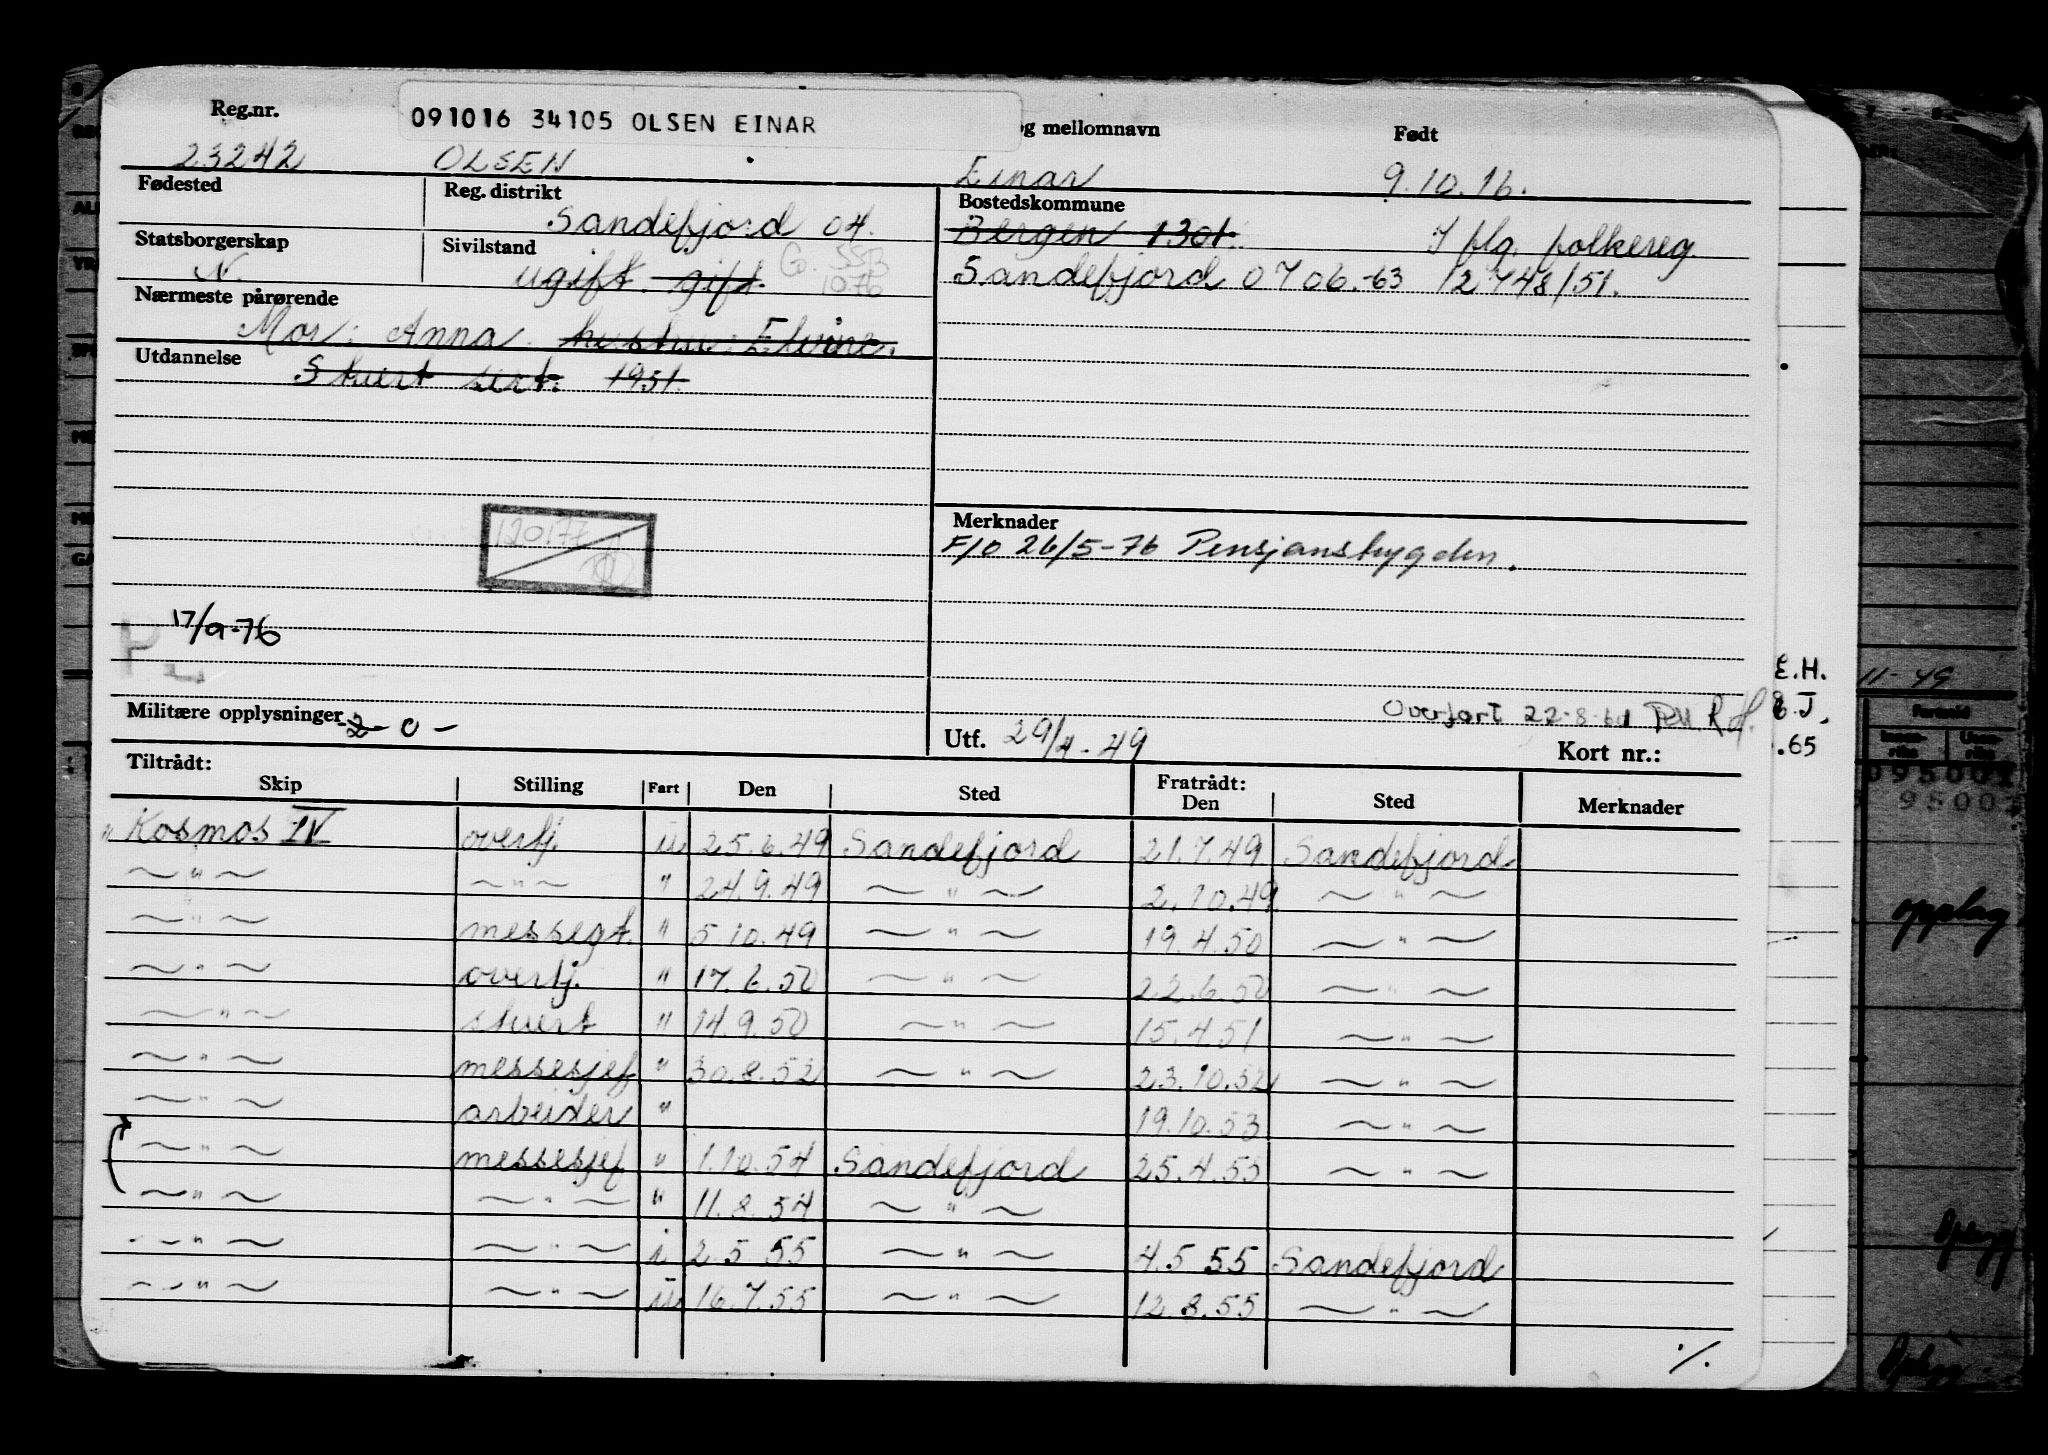 Reg.nr. 091016 34105 OLSEN EINAR og mellomnavn Født
23242 OLSEN Einar 9.10.16.
Fødested Reg. distrikt Bostedskommune
Sandefjord 04. Bergen 1301. I flg. folkereg.
Statsborgerskap Sivilstand
N. ugift. gift. G. SSB 1076 Sandefjord 0706.-63 12748/51.
Nærmeste pårørende
Mor: Anna. hustru: Elvine.
Utdannelse
Stuert sert. 1951.
Merknader
120177
F/O 26/5-76 Pensjonstrygden.
17/9-76
E.H.
11-49
Militære opplysninger -2- 0 - Overført 22-8-61 R.H. J.
Utf. 29/4-49 Kort nr.: .65
Tiltrådt: Fratrådt:
Skip Stilling Fart Den Sted Den Sted Merknader
" Kosmos IV overtj. u 25.6.49 Sandefjord 21.7.49 Sandefjord
~ " ~ ~ " ~ " 24.9.49 ~ " ~ 2.10.49 ~ " ~
~ " ~ messegt. " 5.10.49 ~ " ~ 19.4.50 ~ " ~
~ " ~ overtj. " 17.6.50 ~ " ~ 22.6.50 ~ " ~
~ " ~ stuert " 14.9.50 ~ " ~ 15.4.51 ~ " ~
~ " ~ messesjef " 30.8.52 ~ " ~ 23.10.52 ~ " ~
~ " ~ arbeider " 19.10.53 ~ " ~
~ " ~ messesjef " 1.10.54 Sandefjord 25.4.55 ~ " ~
~ " ~ ~ " ~ " 11.8.54 ~ " ~
~ " ~ ~ " ~ i 2.5 55 ~ " ~ 4.5 55 Sandefjord
~ " ~ ~ " ~ u 16.7.55 ~ " ~ 12.8.55 ~ " ~
./.
095001
95001
opplag